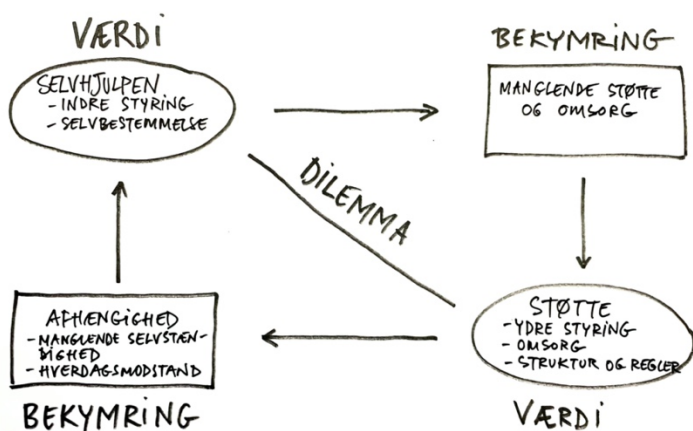 VÆRDI
SELVHJULPEN
- INDRE STYRING
- SELVBESTEMMELSE
BEKYMRING
MANGLENDE STØTTE
OG OMSORG
DILEMMA
AFHÆNGIGHED
- MANGLENDE SELVSTÆN-
DIGHED
- HVERDAGSMODSTAND
BEKYMRING
STØTTE
- YDRE STYRING
- OMSORG
- STRUKTUR OG REGLER
VÆRDI